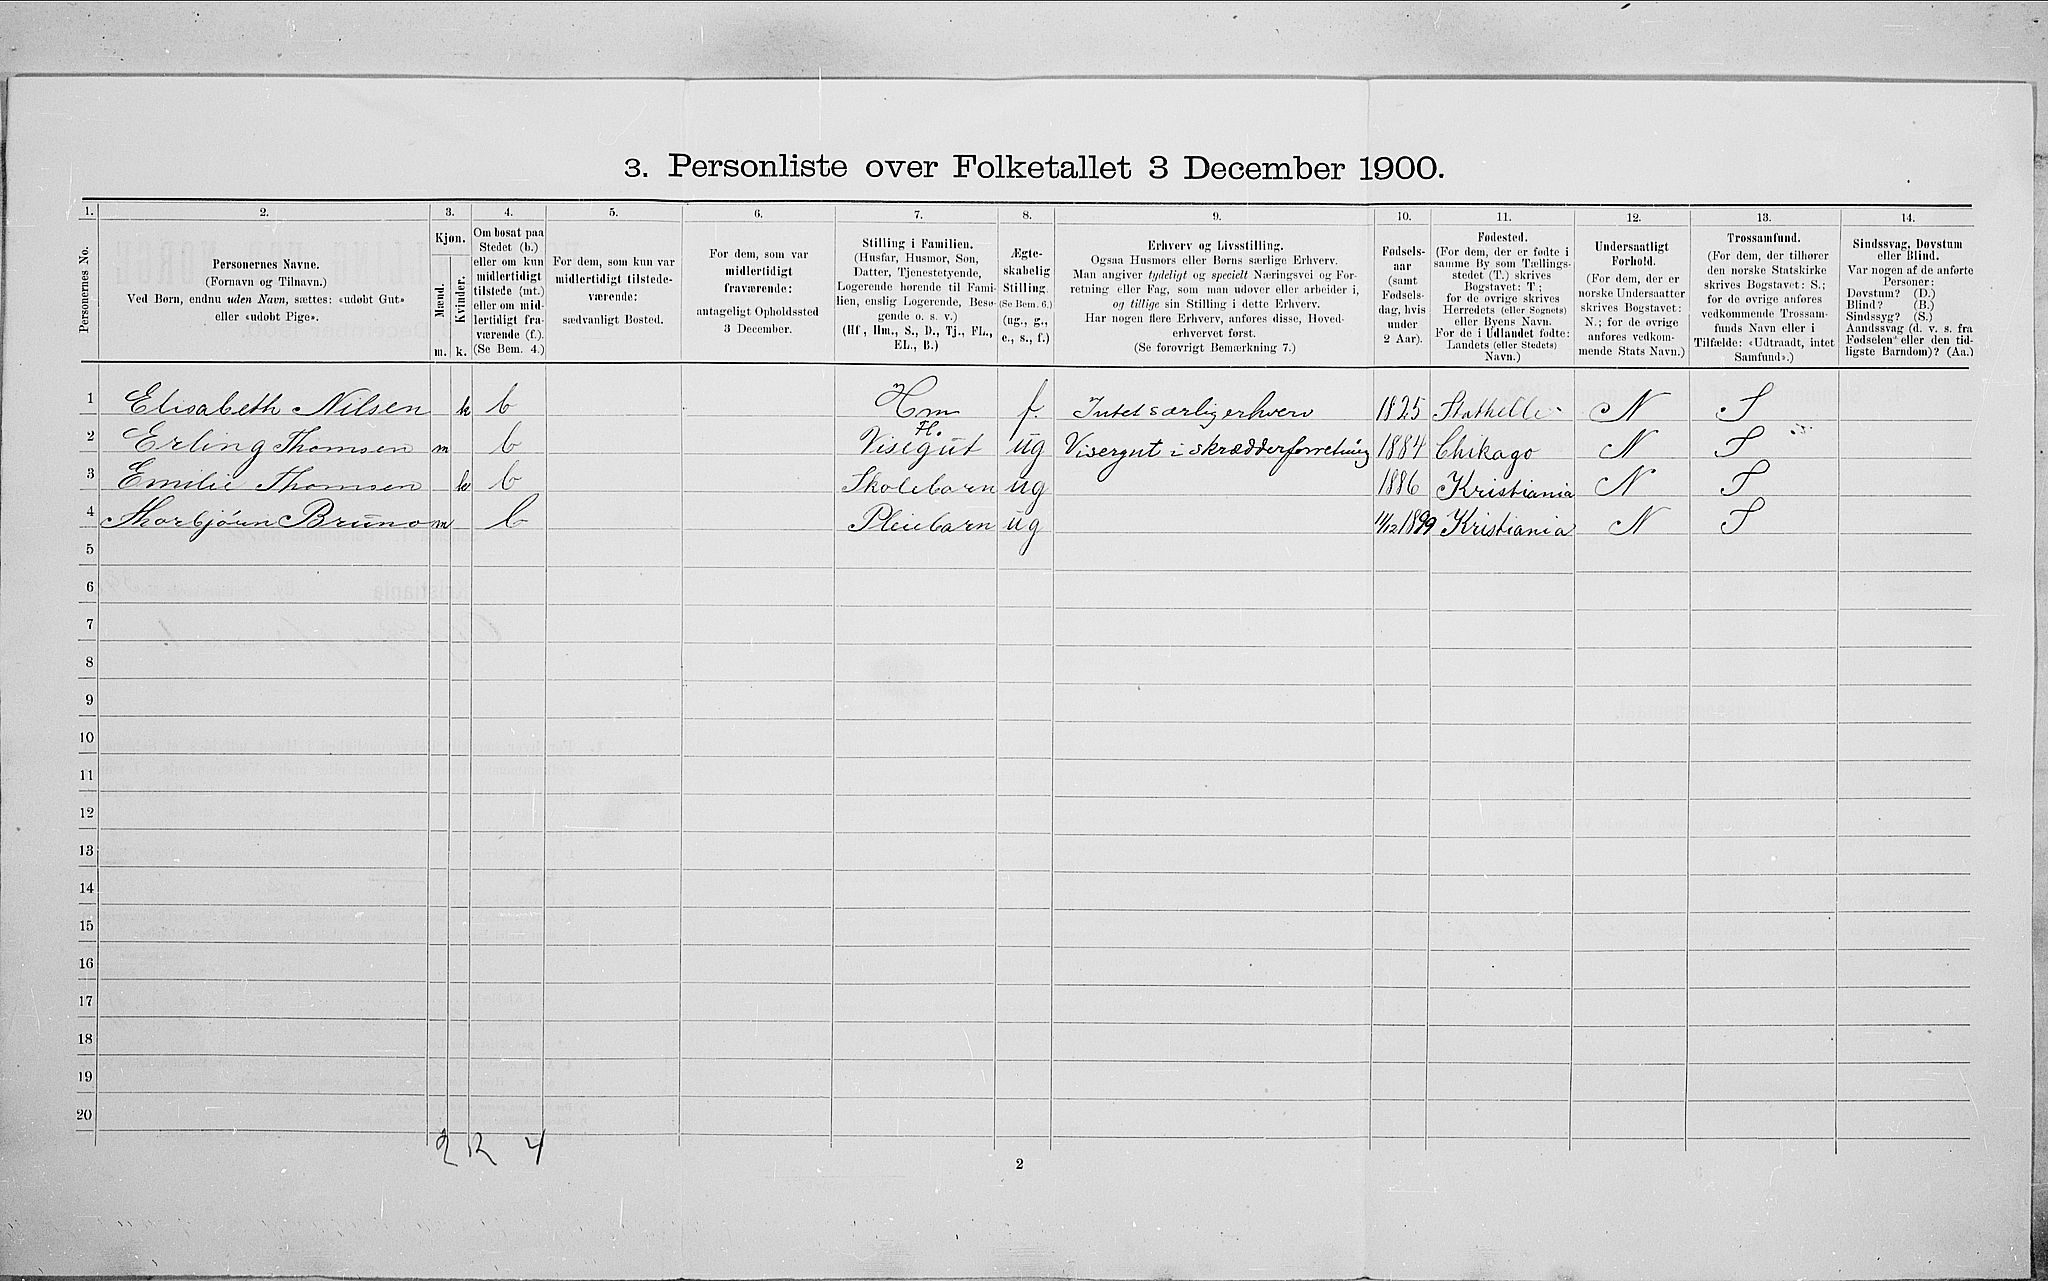 3. Personliste over Folketallet 3 December 1900.
1. 2. 3. 4. 5. 6. 7. 8. 9. 10. 11. 12. 13. 14.
Personernes No.
Personernes Navne.
(Fornavn og Tilnavn.)
Ved Børn, endnu uden Navn, sættes: «udøbt Gut»
eller «udøbt Pige».
Kjøn.
Mænd.
Kvinder.
m. k.
Om bosat paa
Stedet (b.)
eller om kun
midlertidigt
tilstede (mt.)
eller om mid-
lertidigt fra-
værende (f.).
(Se Bem. 4.)
For dem, som kun var
midlertidigt tilstede-
værende:
sædvanligt Bosted.
For dem, som var
midlertidigt
fraværende:
antageligt Opholdssted
3 December.
Stilling i Familien.
(Husfar, Husmor, Søn,
Datter, Tjenestetyende,
Logerende hørende til Fami-
lien, enslig Logerende, Besø-
gende o. s. v.)
(Hf., Hm., S., D., Tj., FL.,
EL., B.)
Ægte-
skabelig
Stilling.
(Se Bem. 6.)
(ug., g.,
e., s., f.)
Erhverv og Livsstilling.
Ogsaa Husmors eller Børns særlige Erhverv.
Man angiver tydeligt og specielt Næringsvei og For-
retning eller Fag, som man udøver eller arbeider i,
og tillige sin Stilling i dette Erhverv.
Har nogen flere Erhverv, anføres disse, Hoved-
erhvervet først.
(Se forøvrigt Bemærkning 7.)
Fødsels-
aar
(samt
Fødsels-
dag, hvis
under
2 Aar).
Fødested.
(For dem, der er fødte i
samme By som Tællings-
stedet (T.) skrives
Bogstavet: T;
for de øvrige skrives
Herredets (eller Sognets)
eller Byens Navn.
For de i Udlandet fødte:
Landets (eller Stedets)
Navn.)
Undersaatligt
Forhold.
(For dem, der er
norske Undersaatter
skrives Bogstavet:
N.; for de øvrige
anføres vedkom-
mende Stats Navn.)
Trossamfund.
(For dem, der tilhører
den norske Statskirke
skrives Bogstavet: S.;
for de øvrige anføres
vedkommende Trossam-
funds Navn eller i
Tilfælde: «Udtraadt, intet
Samfund».)
Sindssvag, Døvstum
eller Blind.
Var nogen af de anførte
Personer:
Døvstum? (D.)
Blind? (B.)
Sindssyg? (S.)
Aandssvag (d. v. s. fra
Fødselen eller den tid-
ligste Barndom)? (Aa.)
1 Elisabeth Nilsen k b Hm f. Intet særlig erhverv 1825 Stathelle N S
2 Erling Thomsen m b Fl. Visegut ug Visergut i skrædderforretning 1884 Chikago N S
3 Emilie Thomsen k b Skolebarn ug 1886 Kristiania N S
4 Thorbjörn Bruno m b Pleiebarn ug 11/12 1899 Kristiania N S
5
6
7
8
9
10
11
12
13
14
15
16
17
18
19
20
2 2 4
2